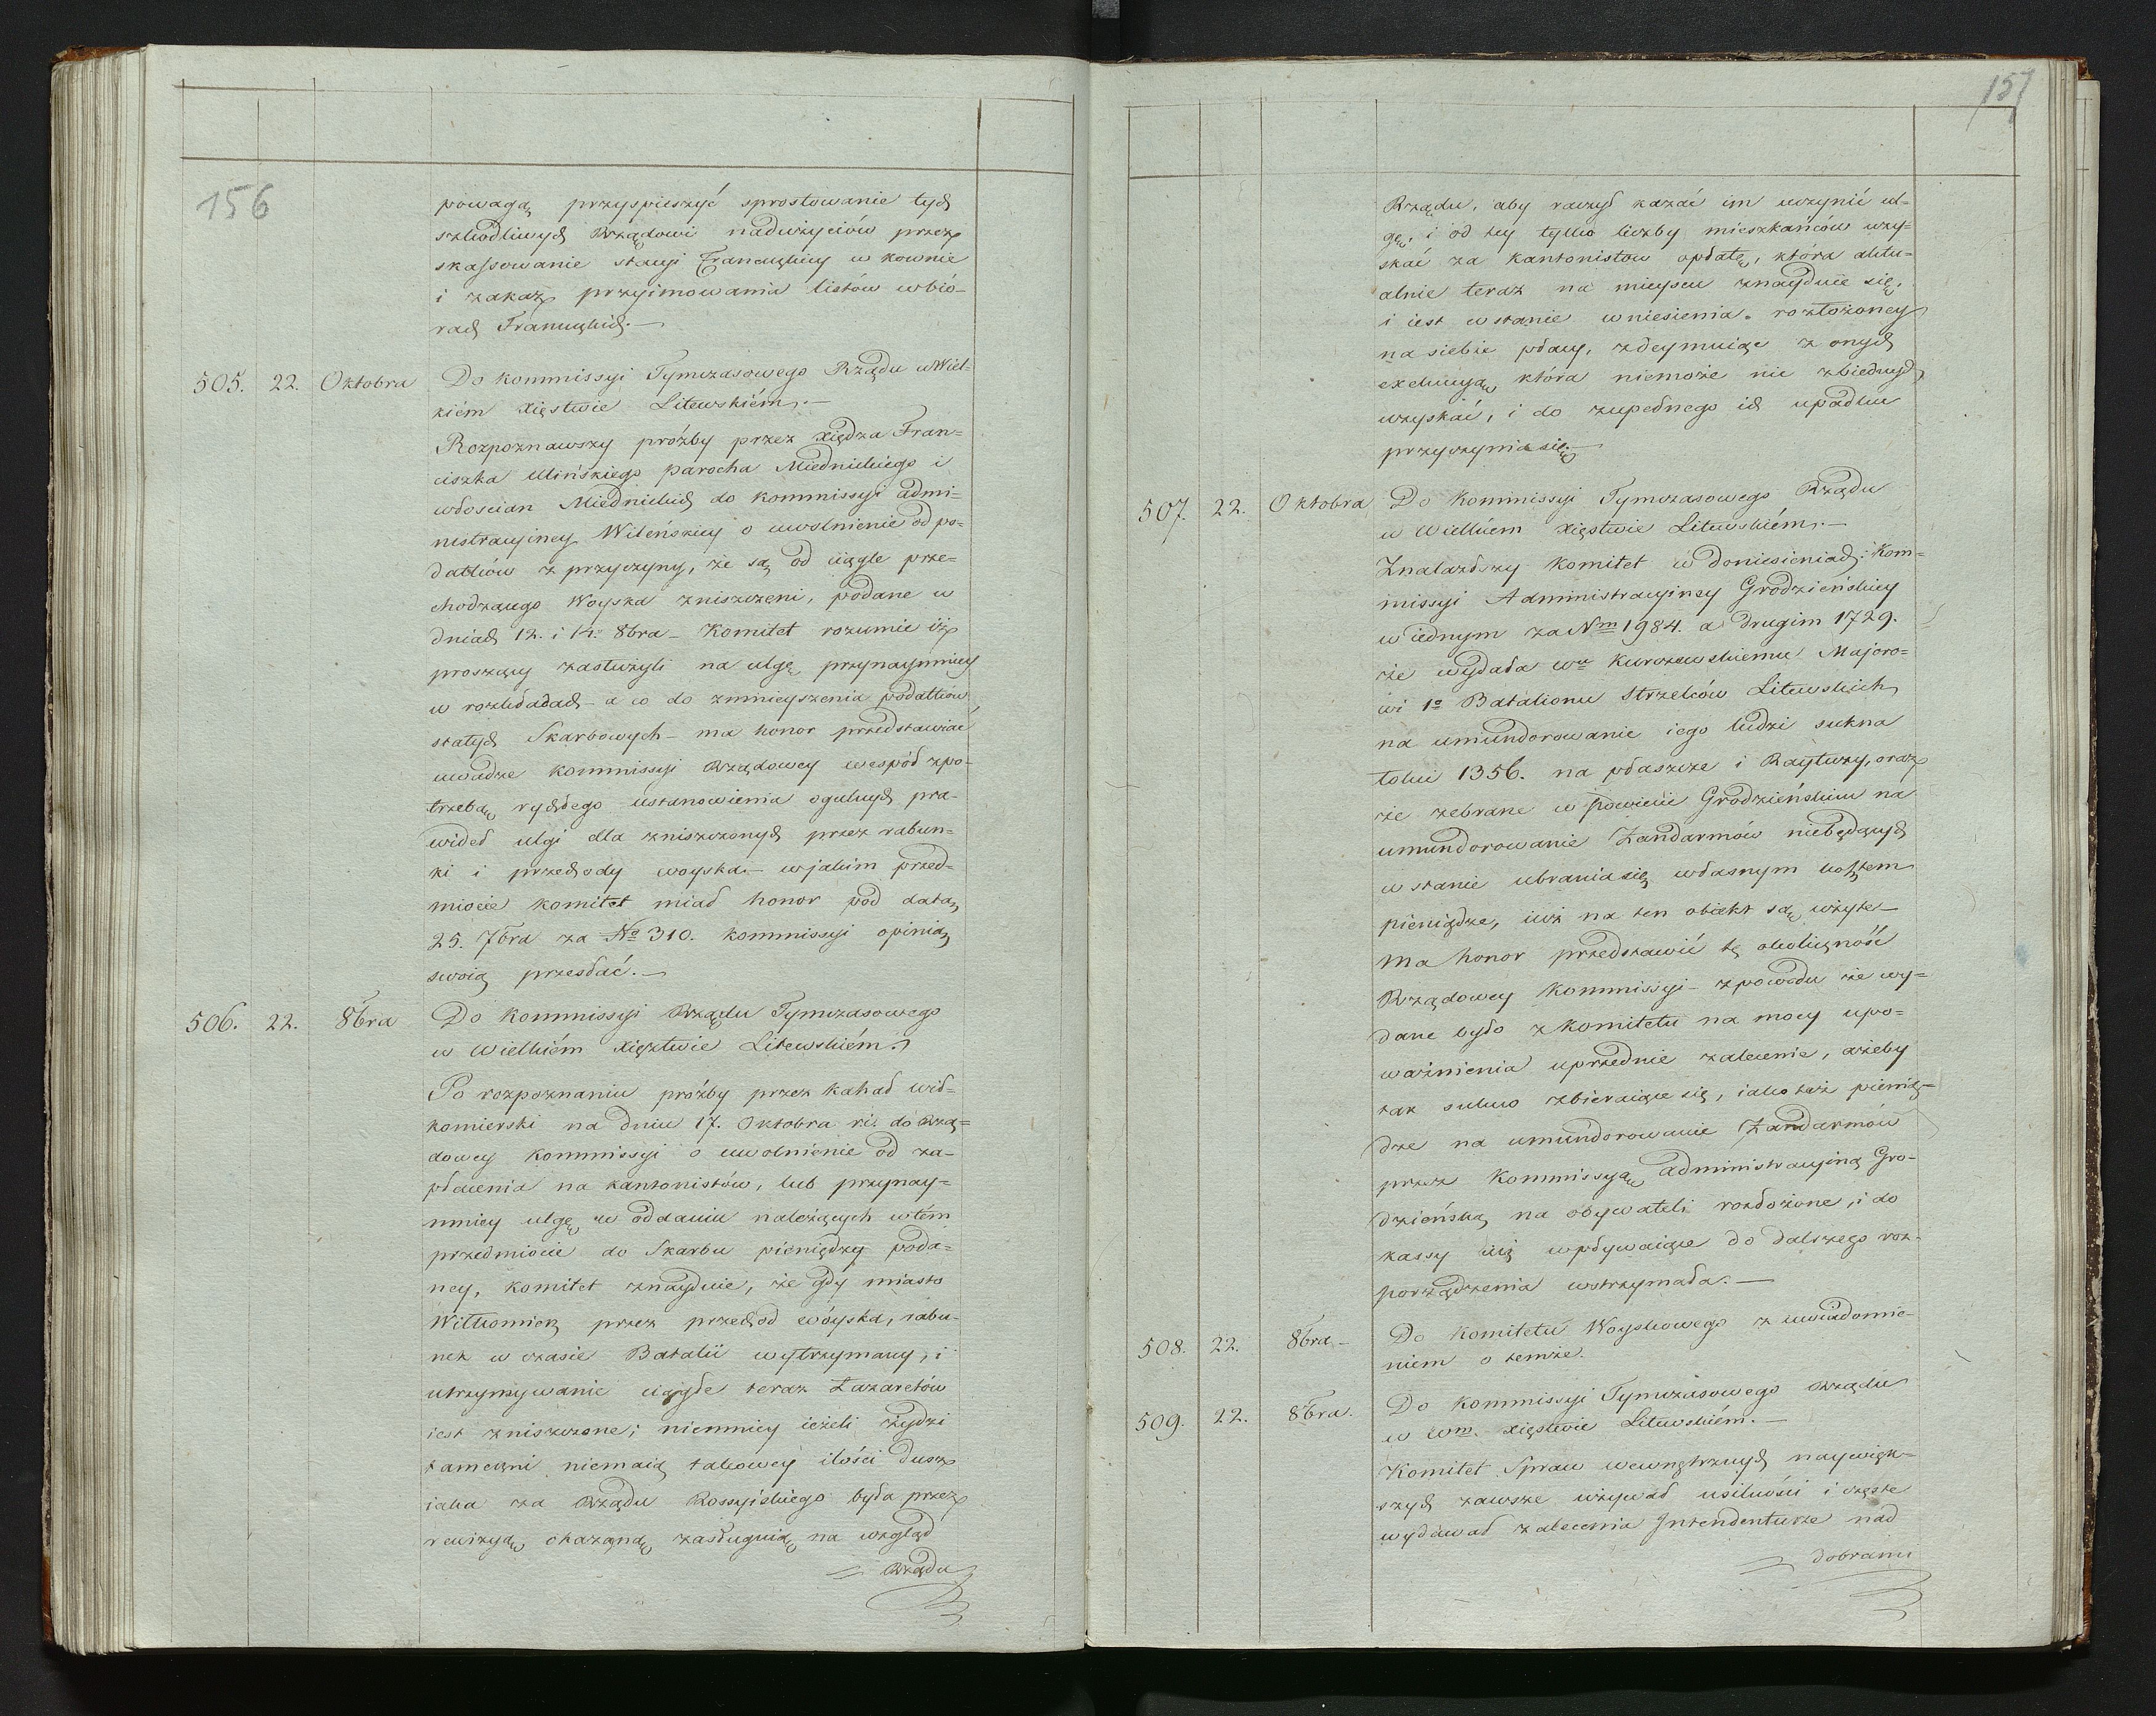 156
powagą przyspieszyć sprostowanie tych
szkodliwych Rządowi nadużyciów przez
skassowanie stacyi Francuzkiey w Kownie
i zakaz przyimowania listów w bió-
rach Francuzkich.—
505. 22. Oktobra Do Kommissyi Tymczasowego Rządu w Wiel-
kiém Xięstwie Litewskiém.—
Rozpoznawszy prózby przez Xiędza Fran=
ciszka Ulińskiego parocha Miednickiego i
włościan Miednickich do Kommissyi admi=
nistracyiney Wileńskiey o uwolnienie od po=
datków z przyczyny, że są od ciągle prze=
chodzącego Woyska zniszczeni, podane w
dniach 12. i 14. 8bra – Komitet rozumie iż
proszący zasłużyli na ulgę przynaymniey
w rozkładach – a co do zmnieyszenia podatków
stałych Skarbowych – ma honor przedstawiać
uwadze Kommissyi Rządowey wespół z po-
trzebą rychłego ustanowienia ogulnych pra-
wideł ulgi dla zniszczonych przez rabun=
ki i przechody woyska – w jakim przed=
miocie Komitet miał honor pod datą
25. 7bra za No 310. Kommissyi opinią
swoią przesłać.—
506. 22. 8bra Do Kommissyi Rządu Tymczasowego
w Wielkiém Xięztwie Litewskiém.
Po rozpoznaniu próżby przez Kahał wił=
komierski na dniu 17. Oktobra r. i. do Rzą=
dowey Kommissyi o uwolnienie od za-
płacenia na kantonistów, lub przynay=
mniey ulgę w oddaniu należących w tém
przedmiocie do Skarbu pieniędzy poda=
ney, Komitet znayduie, że gdy miasto
Wiłkomierz przez przechod woyska, rabu-
nek w czasie Batalii wytrzymany, i
utrzymywanie ciągłe teraz Łazaretów
iest zniszczone; niemniey ieżeli żydzi
tameczni niemaią takowey ilości dusz
iaka za Rządu Rossyiskiego była przez
rewizyą okazaną, zasługuią na wzgląd
= Rządu
157
Rządu, aby raczył kazać im uczynić ul-
gę, i od tey tylko liczby mieszkańców uzy=
skać za kantonistow opłatę, która aktu-
alnie teraz na mieyscu znayduie się,
i iest w stanie wniesienia rozłożoney
na siebie płacy, zdeymuiąc z onych
exekucyą, która niemoże nic z biednych
uzyskać, i do zupełnego ich upadku
przyczynia się.—
507. 22. Oktobra Do Kommissyi Tymczasowego Rządu
w Wielkiém Xięstwie Litewskiém.—
Znalazłszy Komitet w doniesieniach Kom=
missyi Administracyiney Grodzieńskiey
w iednym za Nm 1984. a drugim 1729.
że wydała Wu Kurczewskiemu Majoro=
wi 1o Batalionu Strzelców Litewskich
na umundorowanie iego ludzi sukna
łokci 1356. na płaszcze i Raytuzy, oraz
że zebrane w powiecie Grodzieńskim na
umundorowanie Żandarmów niebędących
w stanie ubrania się własnym kosztem
pieniądze, iuż na ten obiekt są użyte –
ma honor przedstawić tę okoliczność
Rządowey Kommissyi – z powodu że wy=
dane było z Komitetu na mocy upo=
ważnienia uprzednie zalecenie, ażeby
tak sukno zbieraiące się, iako też pienią=
dze na umundorowanie Żandarmów
przez Kommissyą administracyiną Gro-
dzieńską na obywateli rozłożone, i do
kassy iuż wpływaiące do dalszego roz-
porządzenia wstrzymała.—
508. 22. 8bra – Do Komitetu Woyskowego z uwiadomie-
niem o temże.
509. 22. 8bra. Do Kommissyi Tymczasowego Rządu
w Wm. Xięstwie Litewskiém.—
Komitet Spraw wewnętrznych naywięk-
szych zawsze używał usilności i częste
wydawał zalecenia Intendenturze nad
= dobrami